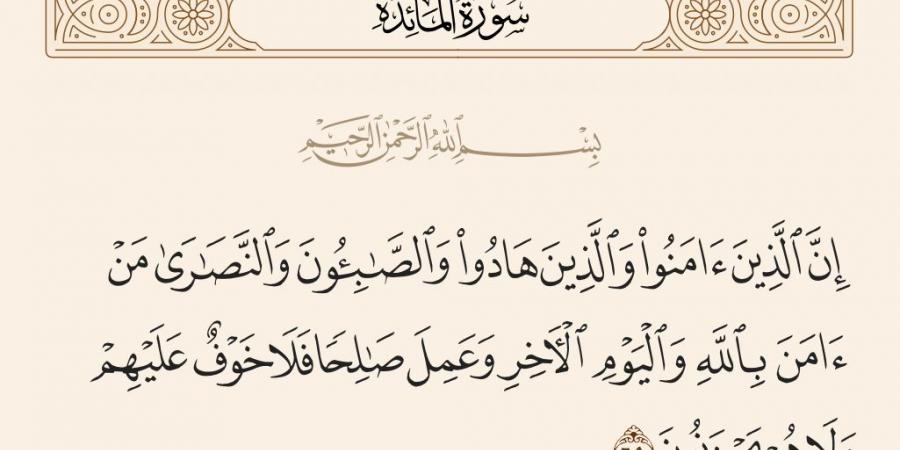 سُورَةُ المَائِدَةِ
بِسْمِ ٱللَّهِ ٱلرَّحْمَٰنِ ٱلرَّحِيمِ
إِنَّ ٱلَّذِينَ ءَامَنُوا۟ وَٱلَّذِينَ هَادُوا۟ وَٱلصَّـٰبِـُٔونَ وَٱلنَّصَـٰرَىٰ مَنْ
ءَامَنَ بِٱللَّهِ وَٱلْيَوْمِ ٱلْـَٔاخِرِ وَعَمِلَ صَـٰلِحًا فَلَا خَوْفٌ عَلَيْهِمْ